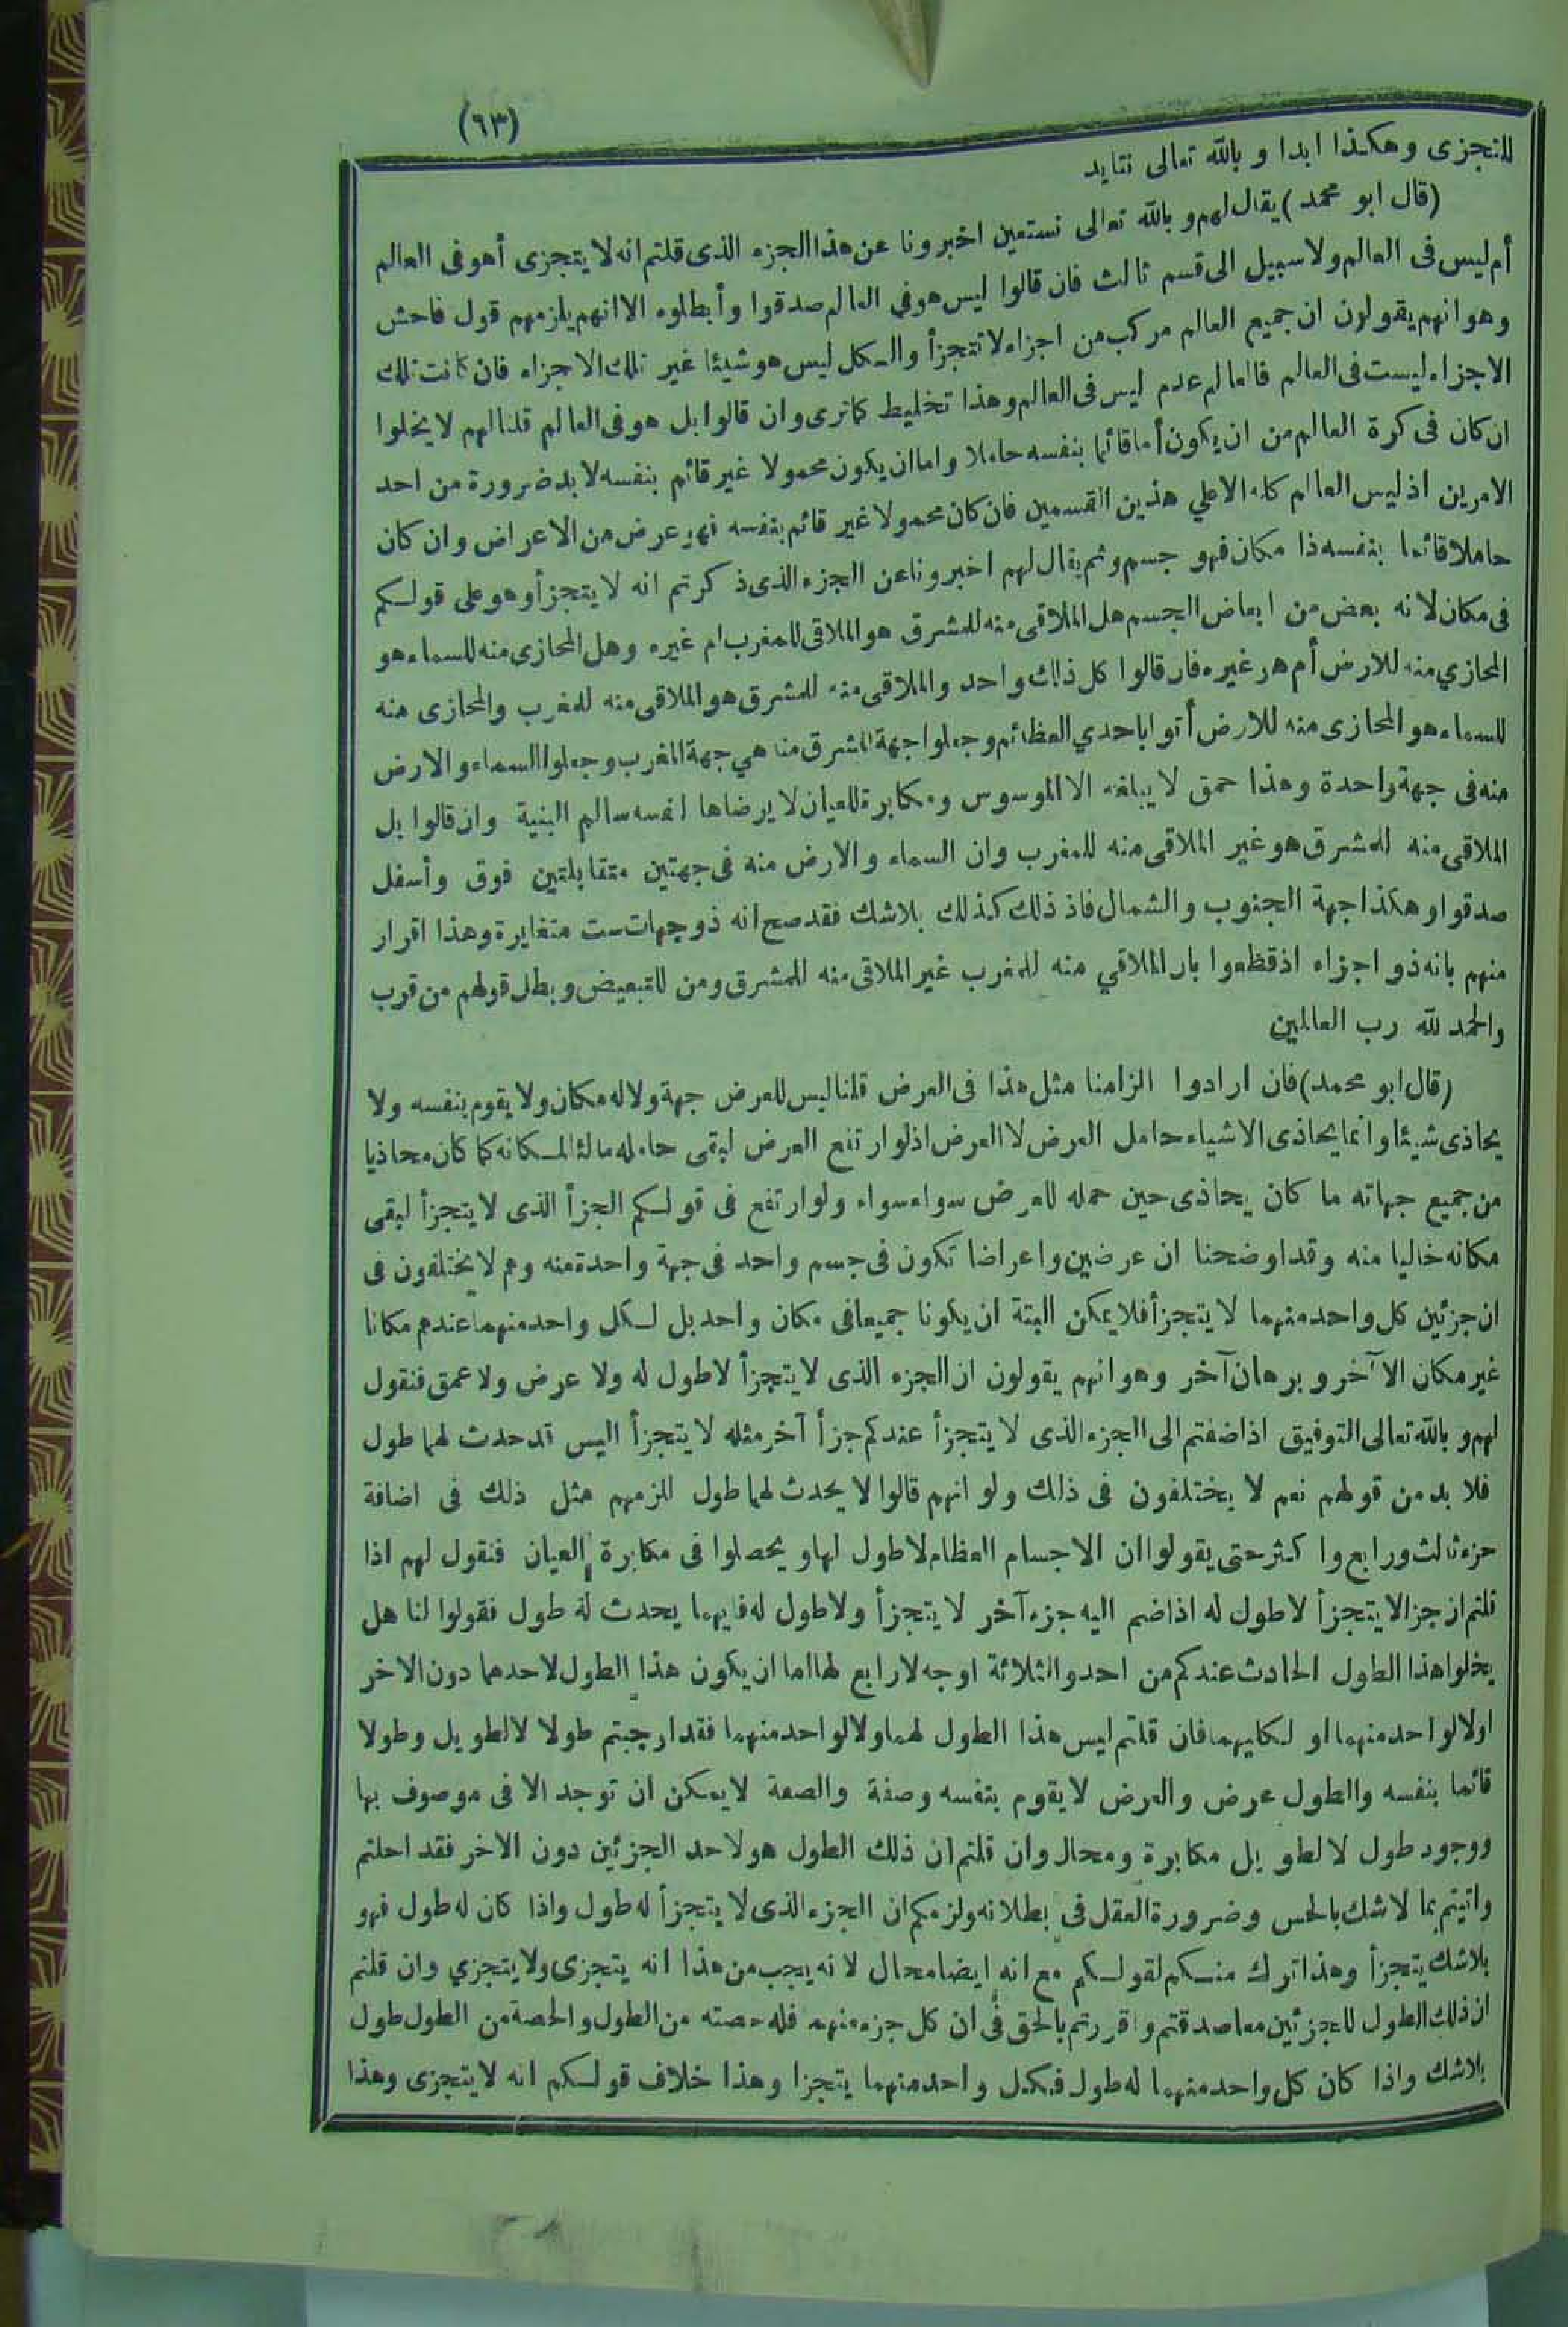 (٦٣)
للتجزى وهكذا ابدا و بالله تعالى نتايد
(قال ابو محمد) يقال لهم و بالله تعالى نستعين اخبرونا عن هذا الجزء الذى قلتم انه لا يتجزى أهو فى العالم
أم ليس فى العالم ولا سبيل الى قسم ثالث فان قالوا ليس هو في العالم صدقوا وأبطلوه الا انهم يلزمهم قول فاحش
وهو انهم يقولون ان جميع العالم مركب من اجزاء لا تتجزأ والكل ليس هو شيئا غير تلك الاجزاء فان كانت تلك
الاجزاء ليست فى العالم فالعالم عدم ليس فى العالم وهذا تخليط كما ترى وان قالوا بل هو فى العالم قلنا لهم لا يخلوا
ان كان فى كرة العالم من ان يكون أما قائما بنفسه حاملا واما ان يكون محمولا غير قائم بنفسه لا بد ضرورة من احد
الامرين اذ ليس العالم كله الا علي هذين القسمين فان كان محمولا غير قائم بنفسه فهو عرض من الاعراض وان كان
حاملا قائما بنفسه ذا مكان فهو جسم وثم يقال لهم اخبرونا عن الجزء الذى ذكرتم انه لا يتجزأ وهو على قولكم
فى مكان لانه بعض من ابعاض الجسم هل الملاقى منه للمشرق هو الملاقى للمغرب ام غيره وهل المحازى منه للسماء هو
المحازي منه للارض أم هر غيره فار قالوا كل ذلك واحد والملاقى منه للمشرق هو الملاقى منه للمغرب والمحازى منه
للسماء هو المحازى منه للارض أتوا باحدي العظائم وجعلوا جهة المشرق منا هي جهة المغرب وجعلوا السماء والارض
منه فى جهة واحدة وهذا حمق لا يبلغه الا الموسوس ومكابرة للعيان لا يرضاها لنفسه سالم البنية وان قالوا بل
الملاقى منه للمشرق هو غير الملاقى منه للمغرب وان السماء والارض منه فى جهتين متقابلتين فوق وأسفل
صدقوا وهكذا جهة الجنوب والشمال فاذ ذلك كذلك بلا شك فقد صح انه ذو جهات ست متغايرة وهذا اقرار
منهم بانه ذو اجزاء اذ قظعوا بار الملاقي منه للمغرب غير الملاقى منه للمشرق ومن للتبعيض وبطل قولهم من قرب
والحمد لله رب العالمين
(قال ابو محمد) فان ارادوا الزامنا مثل هذا فى العرض قلنا ليس للعرض جهة ولا له مكان ولا يقوم بنفسه ولا
يحاذى شيئا وانما يحاذى الاشياء حامل العرض لا العرض اذ لو ارتفع العرض لبقى حامله مالئا لمكانه كما كان محاذيا
من جميع جهاته ما كان يحاذى حين حمله للعرض سواء سواء ولو ارتفع فى قولكم الجزأ الذى لا يتجزأ لبقى
مكانه خاليا منه وقد اوضحنا ان عرضين واعراضا تكون فى جسم واحد فى جهة واحدة منه وهم لا يختلفون فى
ان جزئين كل واحد منهما لا يتجزأ فلا يمكن البتة ان يكونا جميعا فى مكان واحد بل لكل واحد منهما عندهم مكانا
غير مكان الا آخر وبرهان آخر وهو انهم يقولون ان الجزء الذى لا يتجزأ لا طول له ولا عرض ولا عمق فنقول
لهم و بالله تعالى التوفيق اذا ضفتم الى الجزء الذى لا يتجزأ عندكم جزأ آخر مثله لا يتجزأ اليس قد حدث لهما طول
فلا بد من قولهم نعم لا يختلفون فى ذلك ولو انهم قالوا لا يحدث لهما طول للزمهم مثل ذلك فى اضافة
جزء ثالث ورابع وا كثر حتى يقولوا ان الاجسام العظام لا طول لها و يحصلوا فى مكابرة العيان فنقول لهم اذا
قلتم ان جزالا يتجزأ لا طول له اذا ضم اليه جزء آخر لا يتجزأ ولا طول له فايهما يحدث له طول فقولوا لنا هل
يخلوا هذا الطول الحادث عندكم من احد والثلاثة اوجه لا رابع لها اما ان يكون هذا الطول لاحدهما دون الاخر
اولا لواحد منهما او لكليهما فان قلتم ليس هذا الطول لهما ولا لواحد منهما فقد اوجبتم طولا لا لطويل وطولا
قائما بنفسه والطول عرض والعرض لا يقوم بنفسه وصفة والصفة لا يمكن ان توجد الا فى موصوف بها
ووجود طول لا لطويل مكابرة ومحال وان قلتم ان ذلك الطول هو لاحد الجزئين دون الاخر فقد احلتم
واتيتم بما لا شك بالحس وضرورة العقل فى بطلانه ولزمكم ان الجزء الذى لا يتجزأ له طول واذا كان له طول فهو
بلا شك يتجزأ وهذا ترك منكم لقولكم مع انه ايضا محال لانه يجب من هذا انه يتجزى ولا يتجزي وان قلتم
ان ذلك الطول للجزئين معا صدقتم واقررتم بالحق فى ان كل جزء منهما فله حصته من الطول والحصة من الطول طول
بلا شك واذا كان كل واحد منهما له طول فكل واحد منهما يتجزا وهذا خلاف قولكم انه لا يتجزى وهذا